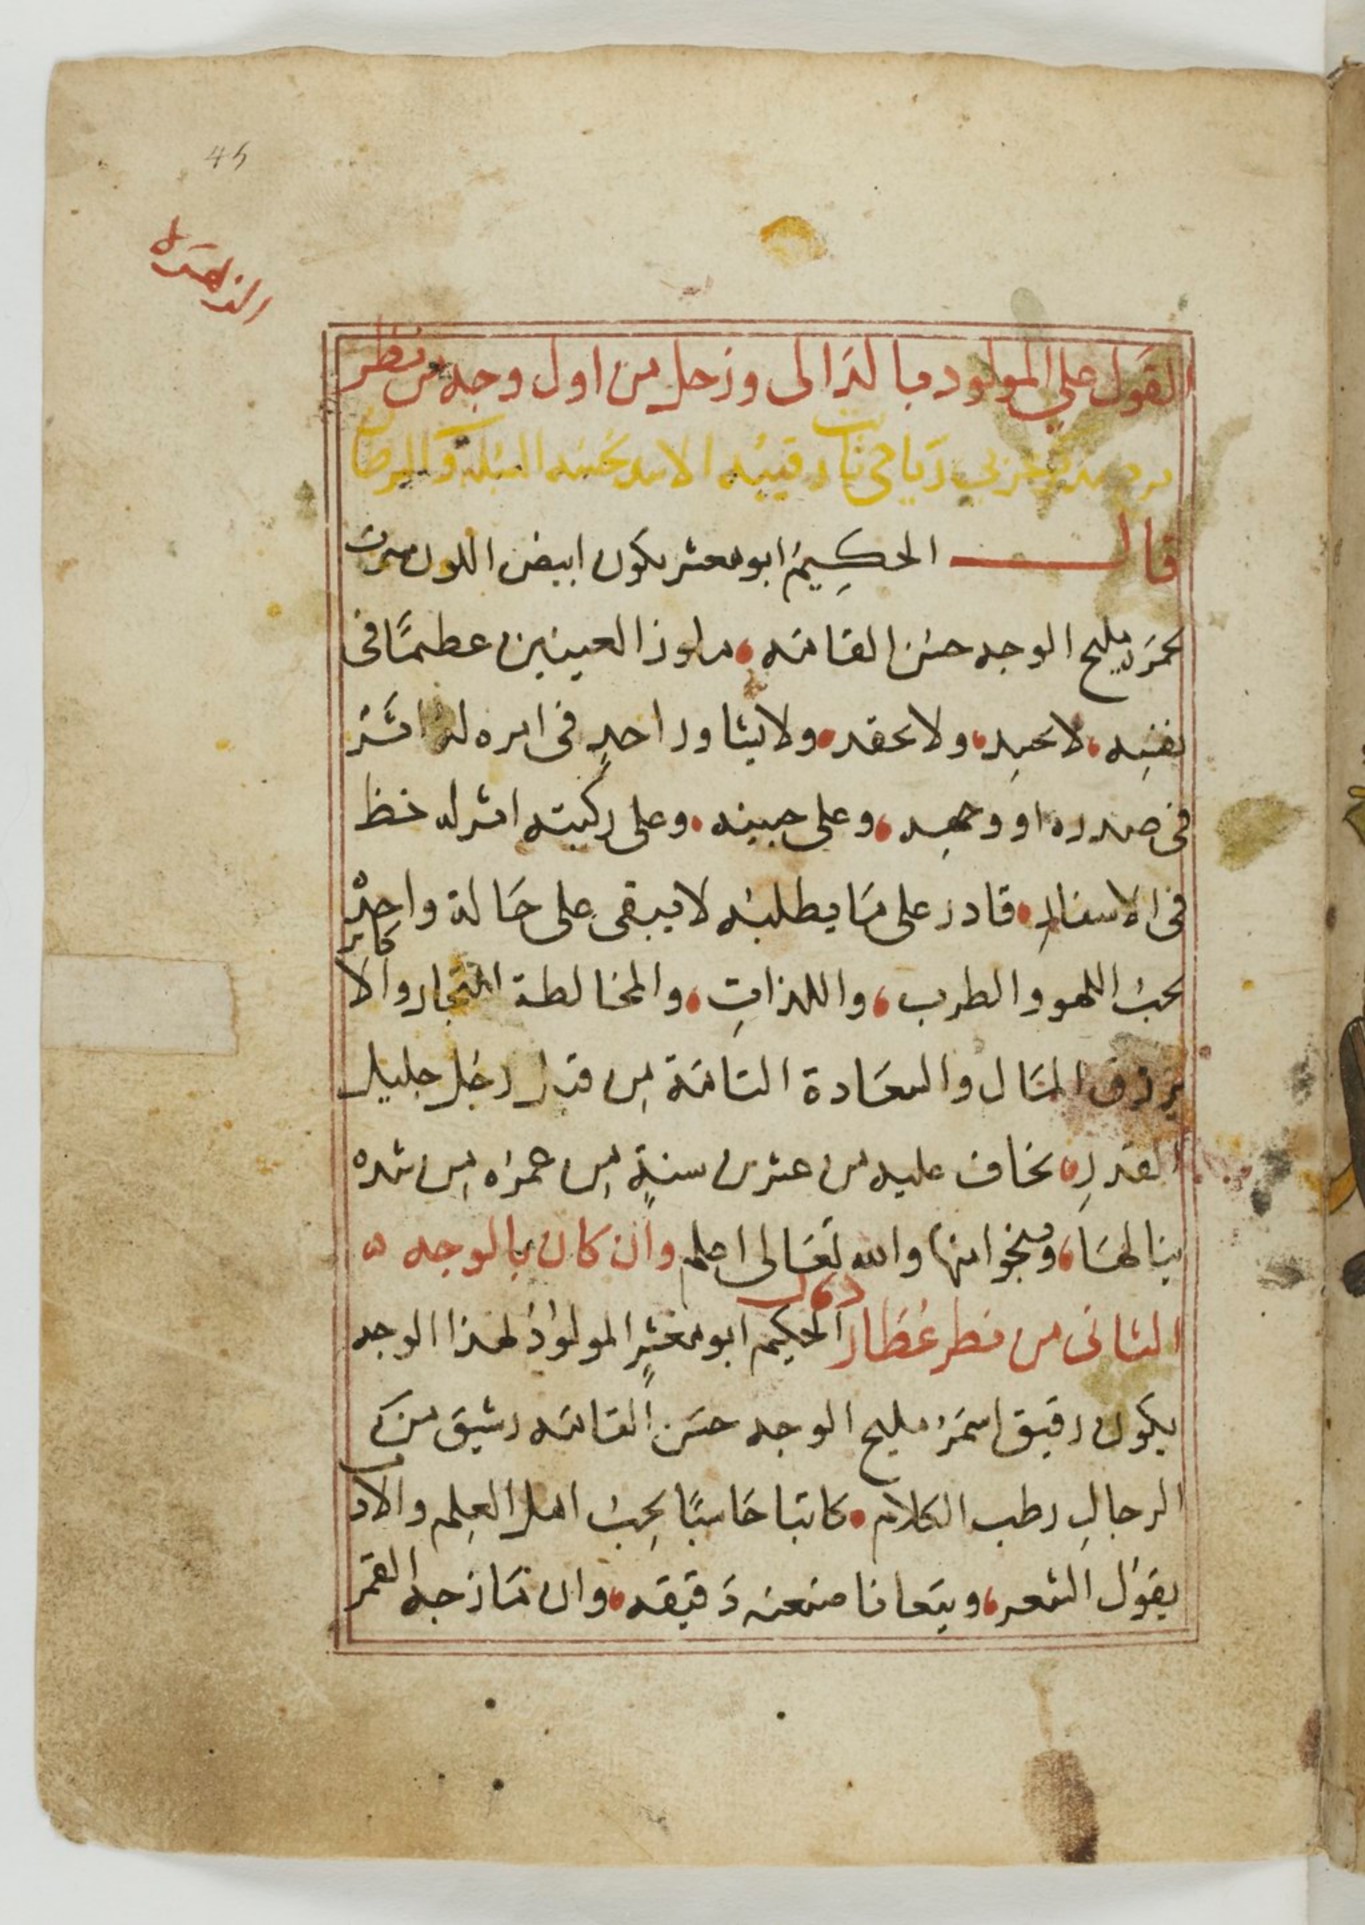 45
الزاهره
القول على المولود بالدالى وزحل من اول وجه من نظر
رياحى الاسد السنبله والسرطان
قال الحكيم ابو معشر يكون ابيض اللون مشرب
بحمره مليح الوجه حسن القامه ملوز العينين عظيمًا فى
نفسِه لا يحسِد ولا يحقد ولا يشاور احدٍ فى امره له اثر
فى صدره او وجهِه وعلى جبينه وعلى ركبته اثر له حظ
فى الاسفارِ قادر على مَا يطلبُه لا يبقى على حَالة واحِدْة
يحبُ اللهو والطرب واللذاتِ والمخالطة التجار والاكابر
يرزق المَال والسعَادة التامَة مِن قبل رجُل جليل
القدرِ يخاف عليه من عشرين سنةٍ مِن عمرُه مِن شده
ينالهَا وينجوا منها والله تعَالى اعلم وان كان بالوجه ه
الثانى من نظر عُطَارد قال الحكيم ابو معْشرٍ المولودُ لهذا الوجه
يكون رقيق اسمَر مليح الوجه حسَن القامَه رشيق من
الرجالِ رطب الكلام كاتبا حَاسبًا يحِبُ اهل العِلم والادب
يقوُل الشعر ويتعانا صنعه دَقيقه وان مَازجه القمر